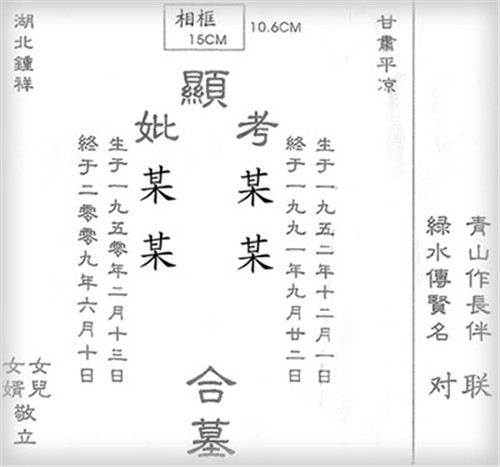 青山作長伴
綠水傳賢名
对联
相框
15CM
10.6CM
甘肅平凉
生于一九五二年十二月一日
終于一九九一年九月廿二日
顯
考某某
妣某某
合墓
生于一九五零年二月十三日
終于二零零九年六月十日
湖北鍾祥
女兒
女婿
敬立